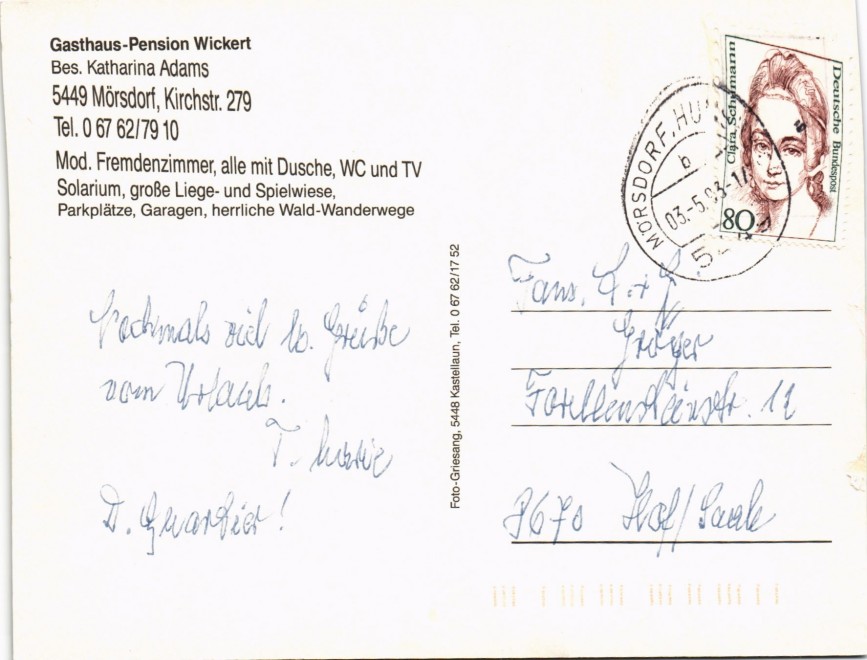 Gasthaus-Pension Wickert
Bes. Katharina Adams
5449 Mörsdorf, Kirchstr. 279
Tel. 0 67 62/79 10
Mod. Fremdenzimmer, alle mit Dusche, WC und TV
Solarium, große Liege- und Spielwiese,
Parkplätze, Garagen, herrliche Wald-Wanderwege
Nochmals viel lb. Grüße
vom Urlaub.
T.
D. Quartier!
Foto-Griesang, 5448 Kastellaun, Tel. 0 67 62/17 52
Clara Schumann
Deutsche Bundespost
80
MÖRSDORF, HU
b
03.-5.93-1
Fam.
Gröger
12
8670 Hof/Saale